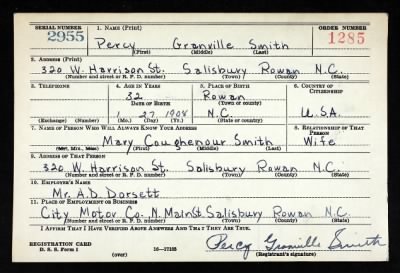 SERIAL NUMBER 1. NAME (Print) ORDER NUMBER
2955 Percy Granville Smith 1285
(First) (Middle) (Last)
2. ADDRESS (Print)
320 W. Harrison St. Salisbury Rowan N.C.
(Number and street or R. F. D. number) (Town) (County) (State)
3. TELEPHONE 4. AGE IN YEARS 5. PLACE OF BIRTH 6. COUNTRY OF CITIZENSHIP
32 Rowan
DATE OF BIRTH (Town or county)
1 27 1908 N.C. U.S.A.
(Exchange) (Number) (Mo.) (Day) (Yr.) (State or country)
7. NAME OF PERSON WHO WILL ALWAYS KNOW YOUR ADDRESS 8. RELATIONSHIP OF THAT PERSON
Mary Caughenour Smith Wife
(Mr., Mrs., Miss) (First) (Middle) (Last)
9. ADDRESS OF THAT PERSON
320 W. Harrison St. Salisbury Rowan N.C.
(Number and street or R. F. D. number) (Town) (County) (State)
10. EMPLOYER'S NAME
Mr. A.D. Dorsett
11. PLACE OF EMPLOYMENT OR BUSINESS
City Motor Co. N. Main St. Salisbury Rowan N.C.
(Number and street or R. F. D. number) (Town) (County) (State)
I AFFIRM THAT I HAVE VERIFIED ABOVE ANSWERS AND THAT THEY ARE TRUE.
REGISTRATION CARD
D. S. S. Form 1 16—17105 Percy Granville Smith
(over) (Registrant's signature)